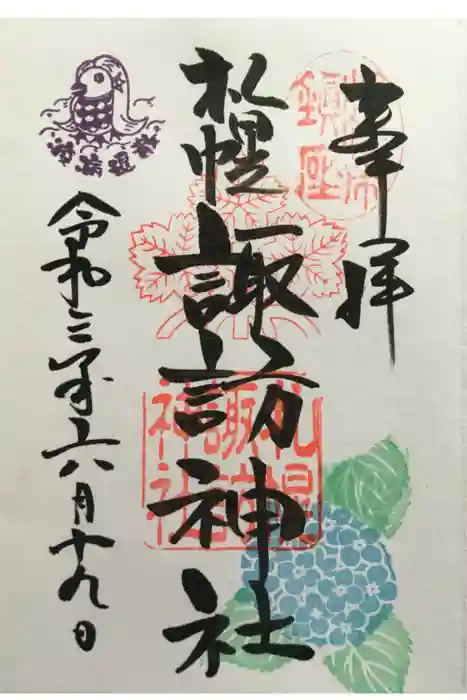 奉拝
鎮座
札幌諏訪神社
札幌
諏訪
神社
令和三年六月十九日